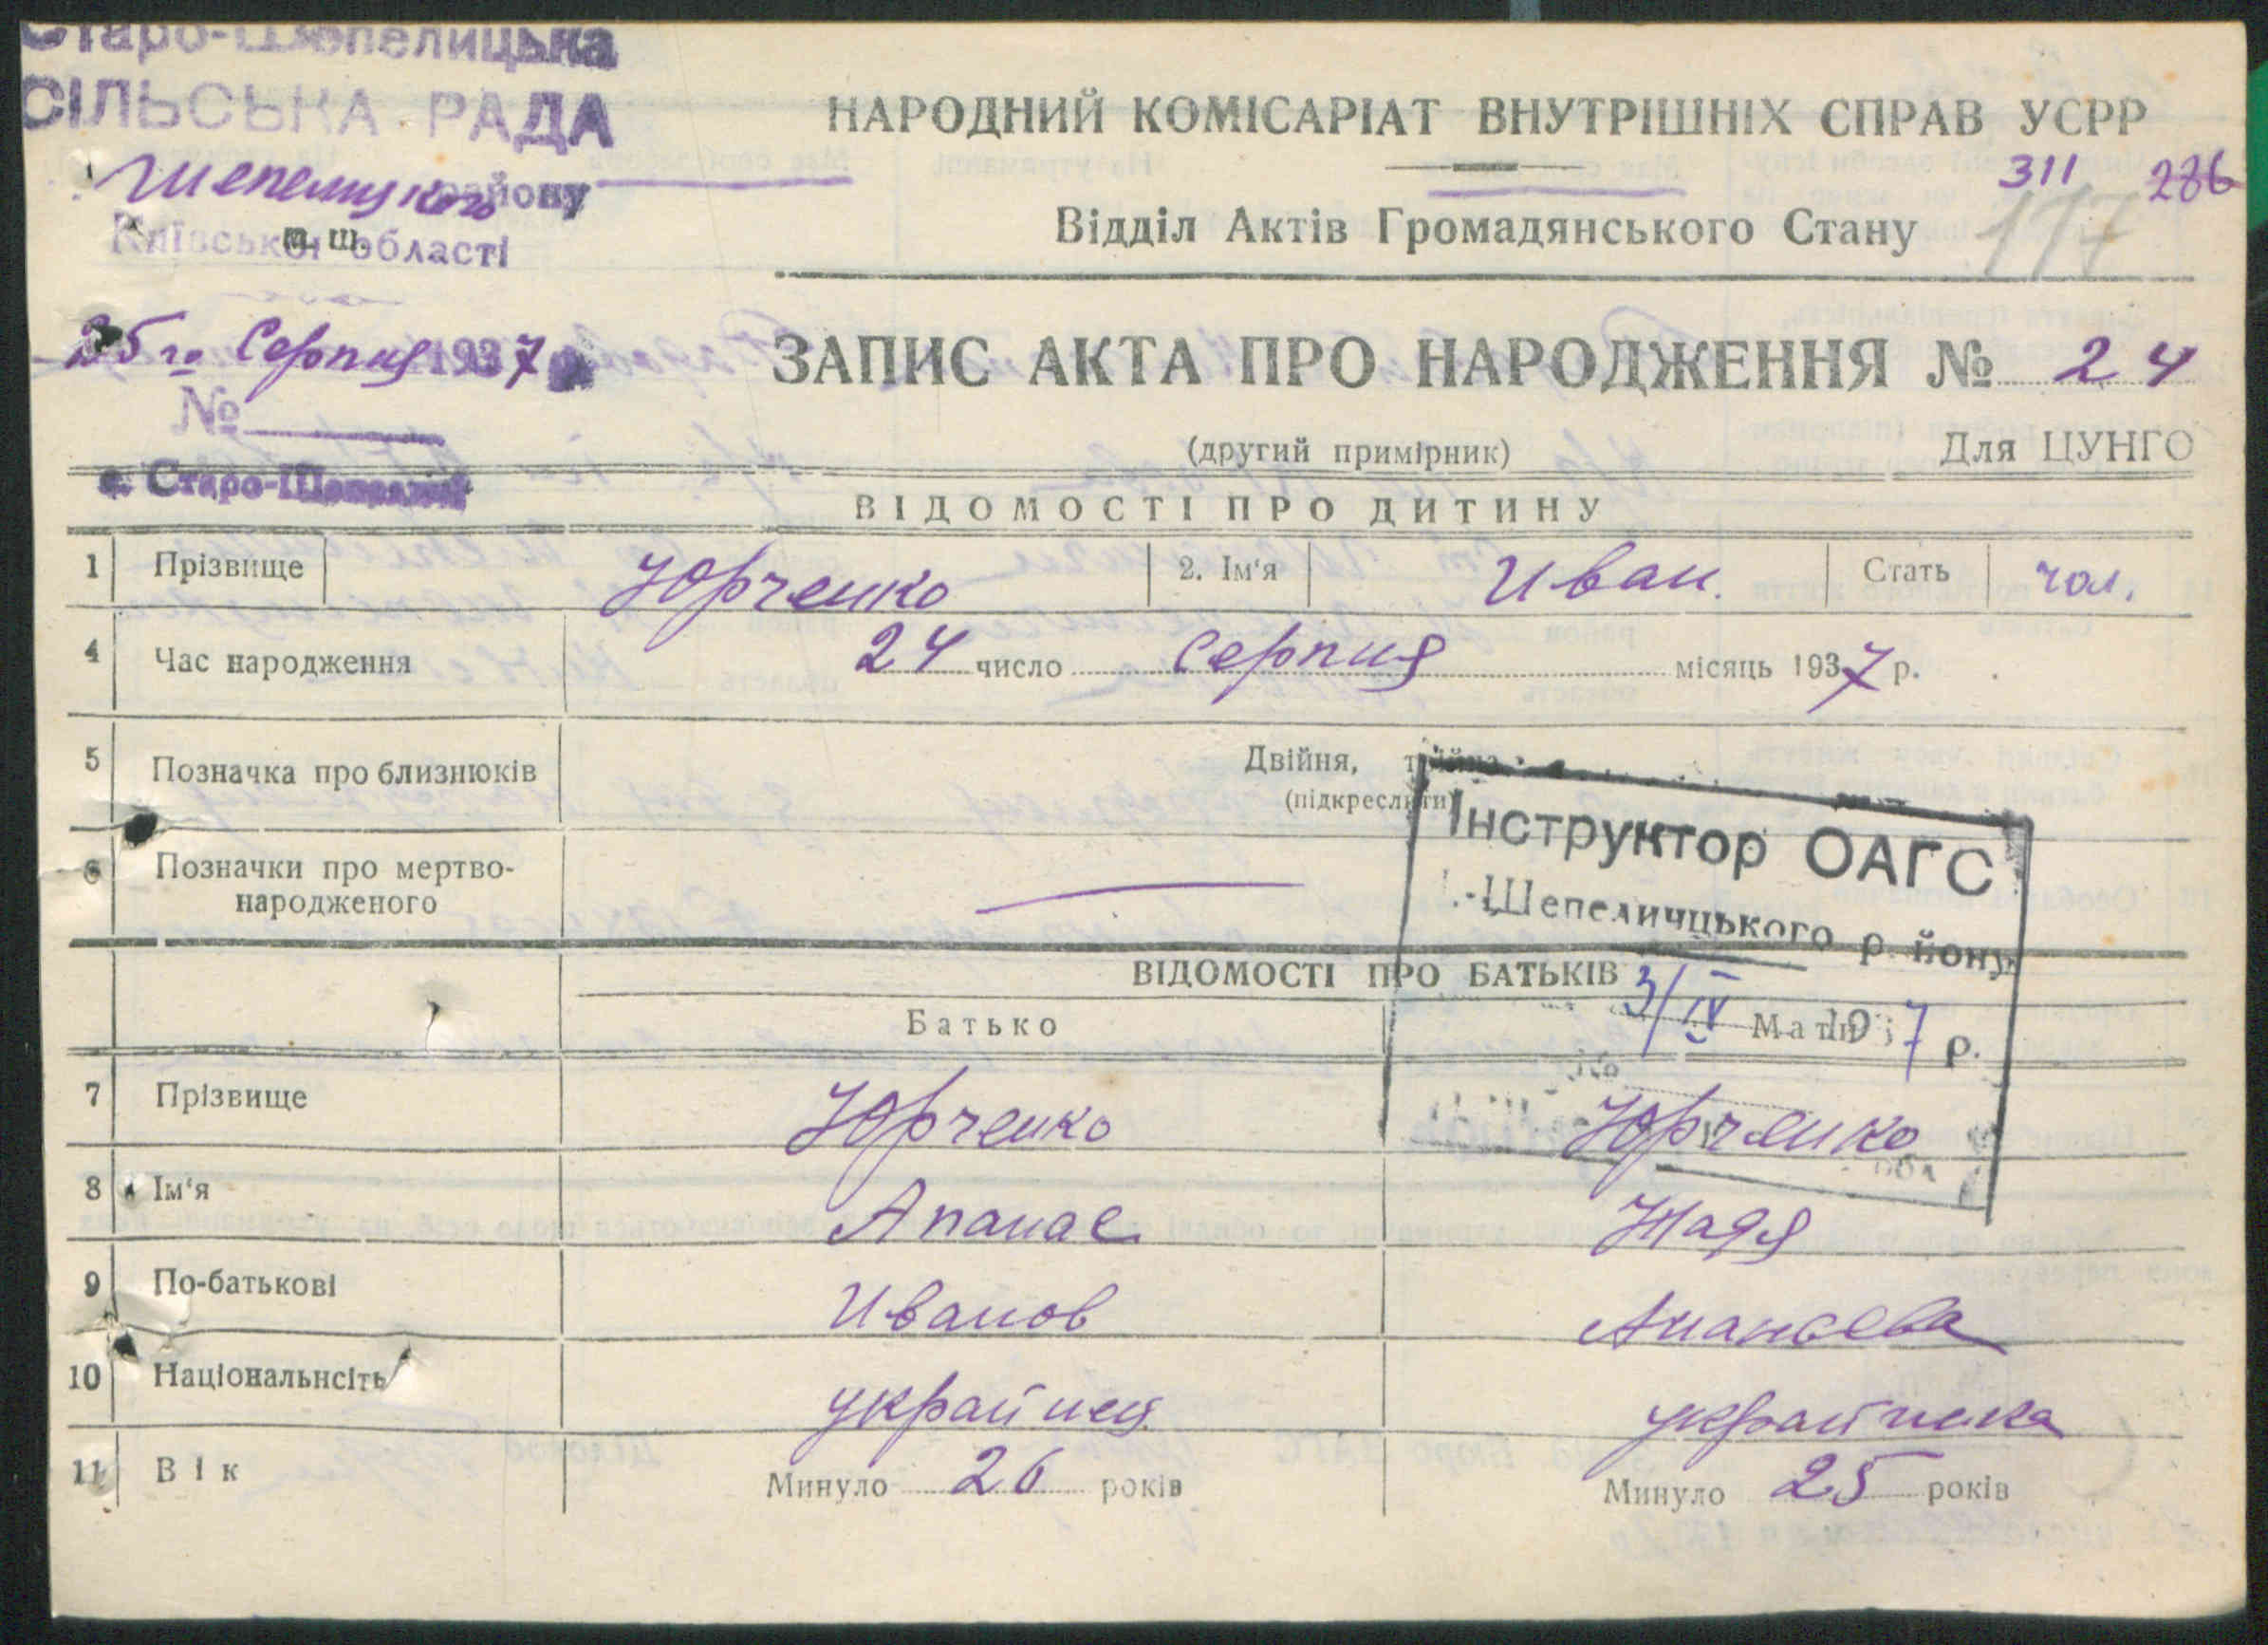 Старо-Шепелицька
СІЛЬСЬКА РАДА
Шепелицкого району
Київської області
НАРОДНИЙ КОМІСАРІАТ ВНУТРІШНІХ СПРАВ УСРР
311 286
Відділ Актів Громадянського Стану 117
25го Серпня 1937
ЗАПИС АКТА ПРО НАРОДЖЕННЯ № 24
№
(другий примірник) Для ЦУНГО
с. Старо-Шепеличі
ВІДОМОСТІ ПРО ДИТИНУ
1 Прізвище Юрченко 2. Ім'я Иван. Стать чол.
4 Час народження 24 число серпня місяць 1937 р.
5 Позначка про близнюків Двійня, трійня
(підкреслити)
Інструктор ОАГС
6 Позначки про мертво-
народженого —
-Шепеличцького р йону
ВІДОМОСТІ ПРО БАТЬКІВ
3/IV 1937 р.
Батько Мати
7 Прізвище Юрченко Юрченко
8 Ім'я Апанас Надя
9 По-батькові Иванов Ананьева
10 Національнсіть украйнец украйнска
11 Вік Минуло 26 років Минуло 25 років